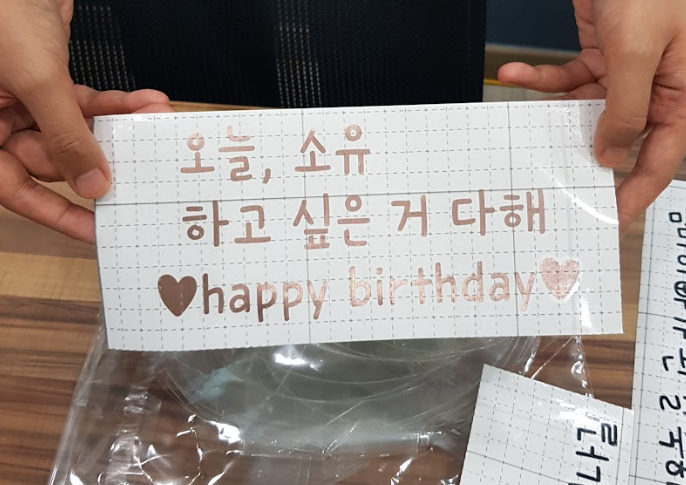 오늘, 소유
하고 싶은 거 다해
♥happy birthday♥